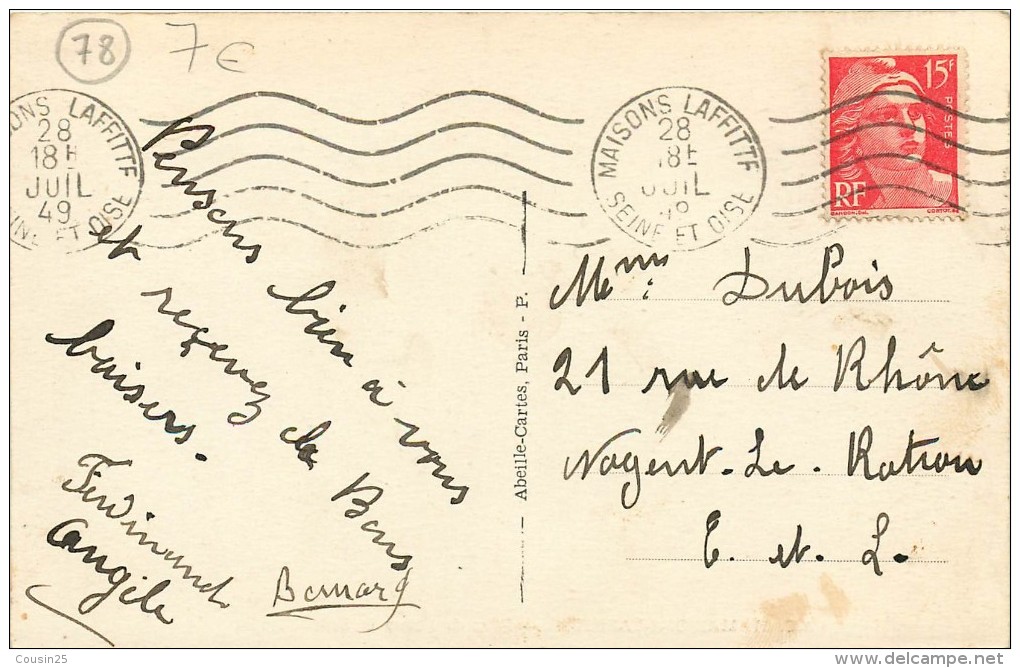 78
7€
MAISONS LAFFITTE
28
18H
JUIL
49
SEINE ET OISE
MAISONS LAFFITTE
28
18H
JUIL
49
SEINE ET OISE
15F
POSTES
RF
GANDON, DEL.
CORTOT, SC
Pensons bien à vous
et recevez de Bons
baisers.
Ferdinand
Angèle
Bernard
Abeille-Cartes, Paris - P.
Mme : DuBois
21 rue de Rhône
Nogent. Le. Rotrou
E. et. L.
Cousin25
delcampe.net